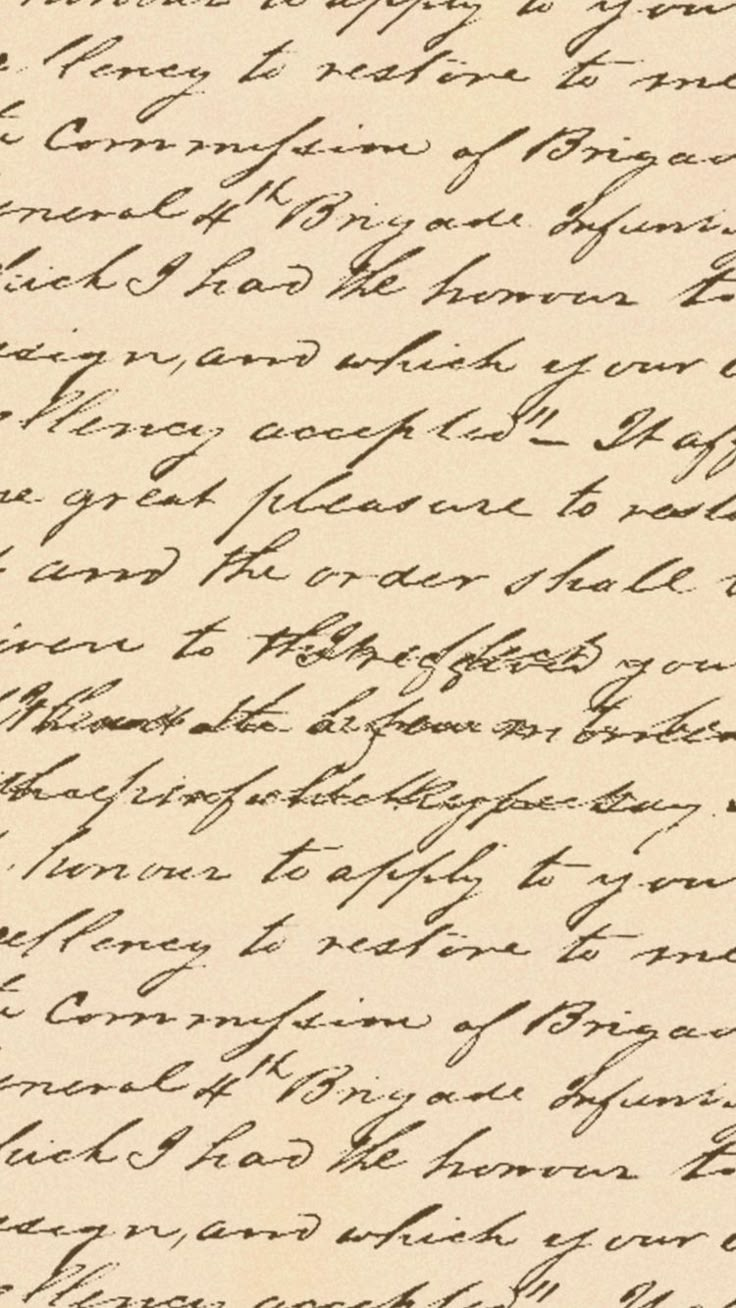 honour to apply to you
llency to restore to me
Commission of Brigad
eneral 4th Brigade Infan
hich I had the honour to
sign, and which your e
llency accepted" – It aff
me great pleasure to resto
t and the order shall
iven to you
honour to apply to you
cellency to restore to me
Commission of Brigad
eneral 4th Brigade Infan
hich I had the honour to
sign, and which your e
llency accepted" –